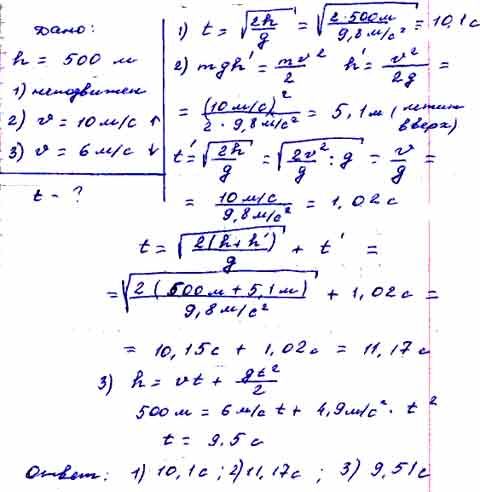 Дано:
h = 500 м
1) неподвижен
2) v = 10 м/с ↑
3) v = 6 м/с ↓
t - ?
1) t = √(2h/g) = √(2·500м/9,8 м/с²) = 10,1с
2) mgh' = mv²/2 h' = v²/2g =
= (10 м/с)²/2·9,8 м/с² = 5,1 м (
вверх)
t' = √(2h/g) = √(2v²/g : g) = v/g =
= 10 м/с/9,8 м/с² = 1,02с
t = √(2(h+h')/g) + t' =
= √(2(500м + 5,1м)/9,8 м/с²) + 1,02с =
= 10,15с + 1,02с = 11,17с
3) h = vt + gt²/2
500м = 6 м/с t + 4,9 м/с² · t²
t = 9,5 с
Ответ: 1) 10,1с; 2) 11,17с; 3) 9,51с